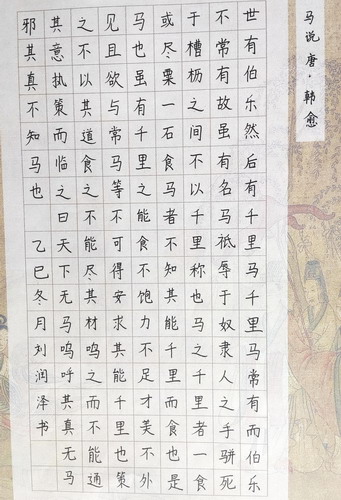 马说 唐·韩愈
世有伯乐然后有千里马千里马常有而伯乐
不常有故虽有名马祗辱于奴隶人之手骈死
于槽枥之间不以千里称也马之千里者一食
或尽粟一石食马者不知其能千里而食也是
马也虽有千里之能食不饱力不足才美不外
见且欲与常马等不可得安求其能千里也策
之不以其道食之不能尽其材鸣之而不能通
其意执策而临之曰天下无马呜呼其真无马
邪其真不知马也 乙巳冬月刘润泽书